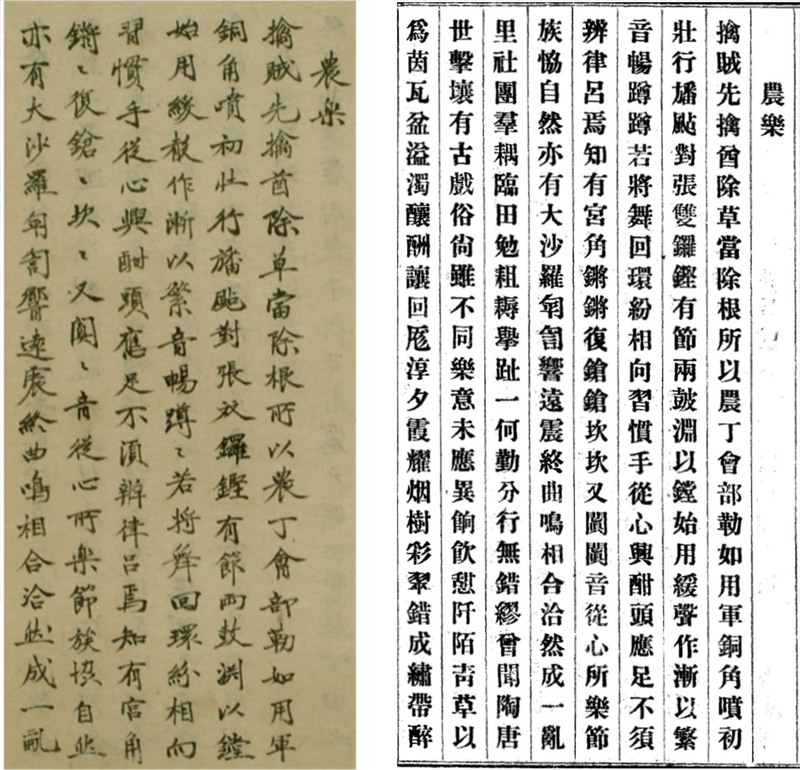 農楽
擒賊先擒酋除草當除根所以農丁會部勒如用軍
銅角噴初壮行旛颭對張双鑼鏗有節両鼓淵以鏜
始用緩聲作漸以繁音暢蹲〻若将舞回環紛相向
習慣手從心興酣頭應足不須辦律呂焉知有宮角
鏘〻復鎗〻坎〻又闐〻音從心所楽節族協自然
亦有大沙羅匉訇響遠震終曲鳴相合洽然成一亂
農樂
擒賊先擒酋除草當除根所以農丁會部勒如用軍銅角噴初
壯行旛颭對張雙鑼鏗有節兩皷淵以鏜始用緩聲作漸以繁
音暢蹲蹲若將舞回環紛相向習慣手從心興酣頭應足不須
辨律呂焉知有宮角鏘鏘復鎗鎗坎坎又闐闐音從心所樂節
族恊自然亦有大沙羅匉訇響遠震終曲鳴相合洽然成一亂
里社團羣耦臨田勉耝耨擧趾一何勤分行無錯繆曾聞陶唐
世擊壤有古戲俗尙雖不同樂意未應異餉飮憇阡陌靑草以
爲茵瓦盆溢濁釀酬讓回巵淳夕霞耀烟樹彩翠錯成繡帶醉